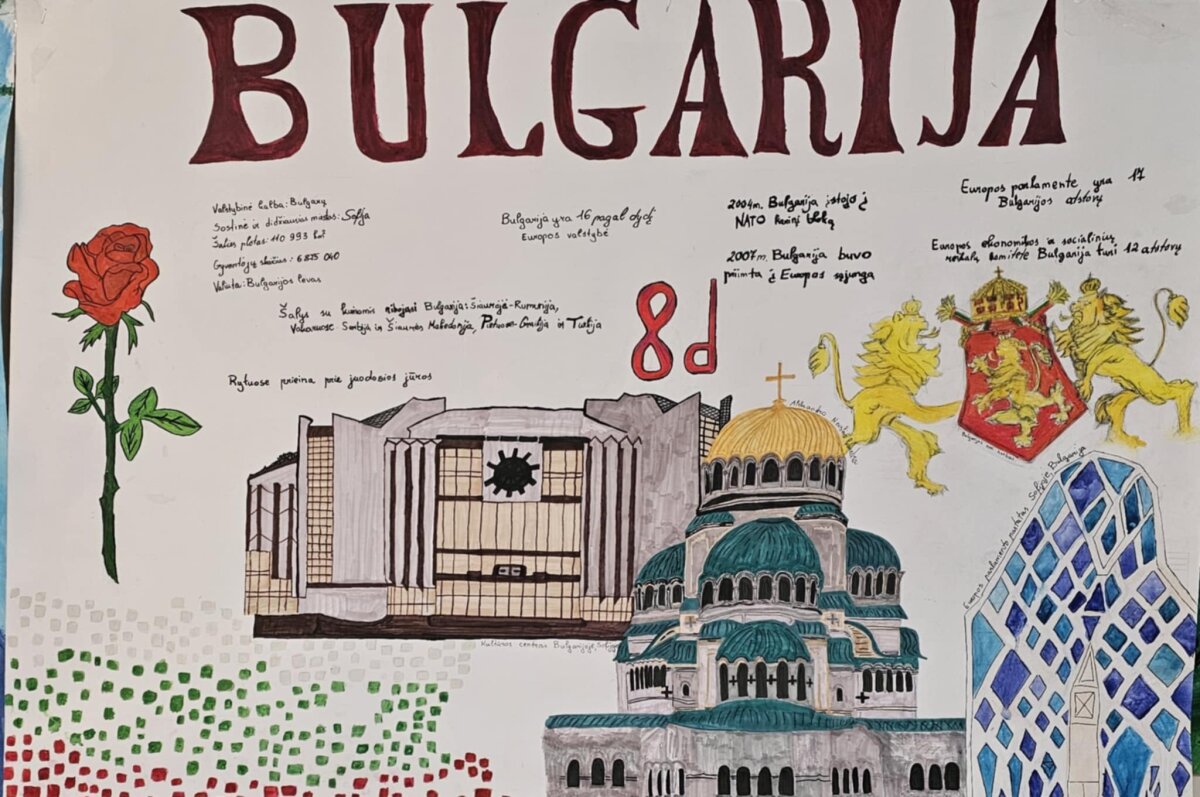 BULGARIJA
Valstybinė kalba: Bulgarų
Sostinė ir didžiausias miestas: Sofija
Šalies plotas: 110 993 km²
Gyventojų skaičius: 6 875 040
Valiuta: Bulgarijos levas
Bulgarija yra 16 pagal dydį
Europos valstybė
2004m. Bulgarija įstojo į
NATO karinį bloką
2007m. Bulgarija buvo
priimta į Europos sąjungą
Europos parlamente yra 17
Bulgarijos atstovų
Europos ekonomikos ir socialinių
reikalų komitete Bulgarija turi 12 atstovų
Šalys su kuriomis ribojasi Bulgarija: Šiaurėje-Rumunija,
Vakaruose Serbija ir Šiaurės Makedonija, Pietuose-Graikija ir Turkija
8d
Rytuose prieina prie juodosios jūros
Aleksandro Nevskio
Europos parlamento pastatas Sofijoje, Bulgarija
Kultūros centras Bulgarijoje, Sofijoje